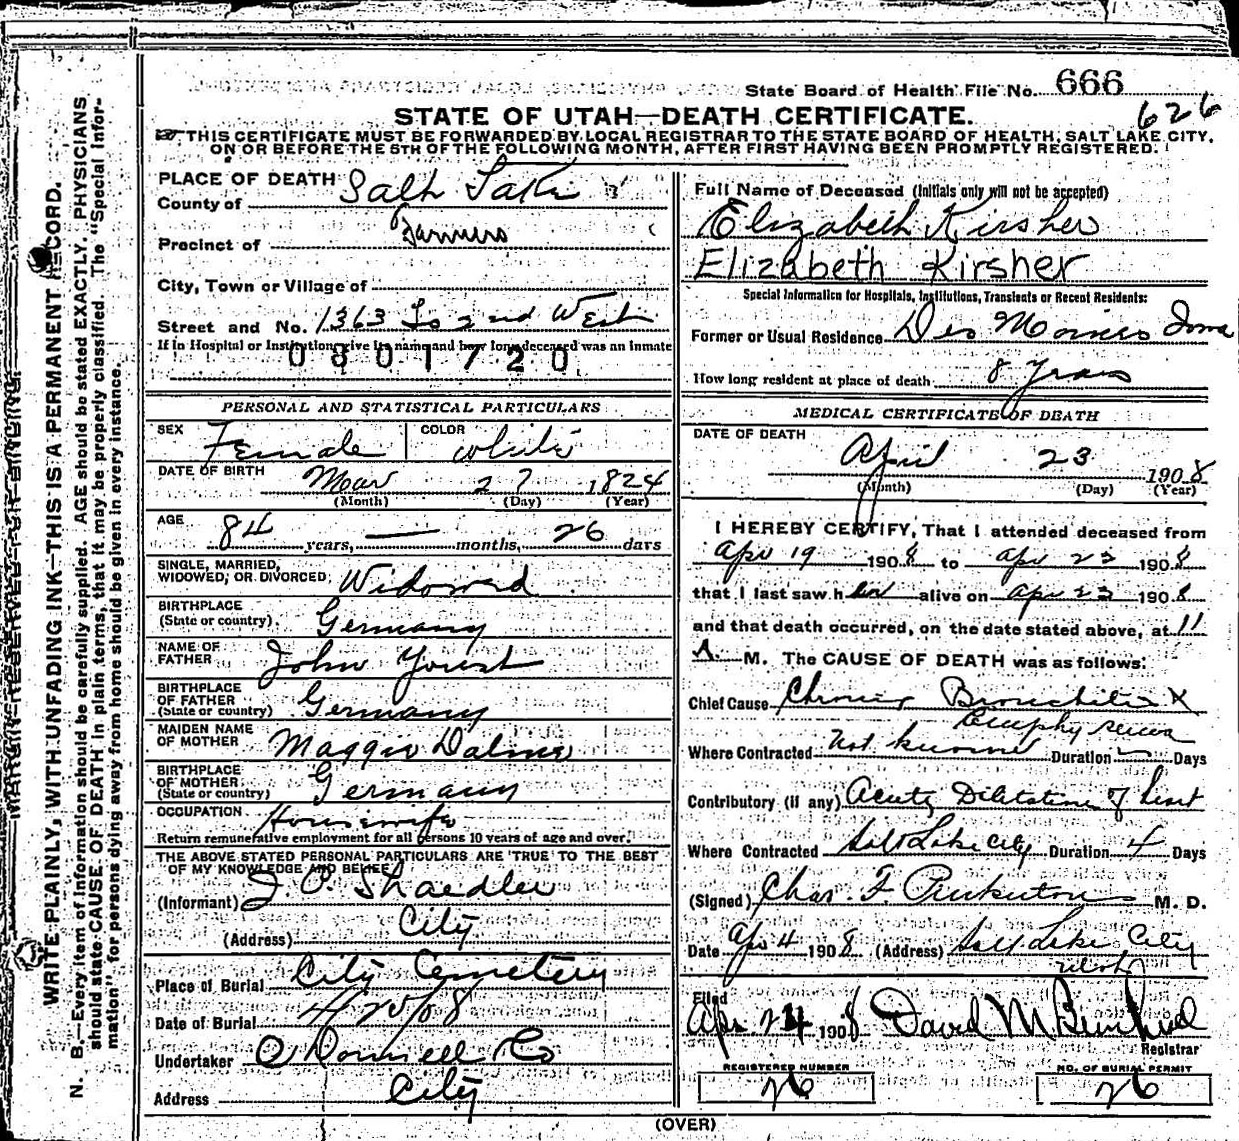 State Board of Health File No. 666
626
STATE OF UTAH—DEATH CERTIFICATE.
THIS CERTIFICATE MUST BE FORWARDED BY LOCAL REGISTRAR TO THE STATE BOARD OF HEALTH, SALT LAKE CITY,
ON OR BEFORE THE 5TH OF THE FOLLOWING MONTH, AFTER FIRST HAVING BEEN PROMPTLY REGISTERED.
WRITE PLAINLY, WITH UNFADING INK—THIS IS A PERMANENT RECORD.
N. B.—Every item of information should be carefully supplied. AGE should be stated EXACTLY. PHYSICIANS
should state CAUSE OF DEATH in plain terms, that it may be properly classified. The "Special Infor-
mation" for persons dying away from home should be given in every instance.
PLACE OF DEATH
County of Salt Lake
Precinct of Farmers
City, Town or Village of
Street and No. 1363 So 2nd West
If in Hospital or Institution give its name and how long deceased was an inmate
0801720
PERSONAL AND STATISTICAL PARTICULARS
SEX Female COLOR white
DATE OF BIRTH Mar 27 1824
(Month) (Day) (Year)
AGE 84 years, — months, 26 days
SINGLE, MARRIED,
WIDOWED, OR DIVORCED, Widowed
BIRTHPLACE
(State or country). Germany
NAME OF
FATHER John Yourst
BIRTHPLACE
OF FATHER
(State or country) Germany
MAIDEN NAME
OF MOTHER Maggie
BIRTHPLACE
OF MOTHER
(State or country) Germany
OCCUPATION Housewife
Return remunerative employment for all persons 10 years of age and over.
THE ABOVE STATED PERSONAL PARTICULARS ARE TRUE TO THE BEST
OF MY KNOWLEDGE AND BELIEF
(Informant) J. O. Shaedler
(Address) City
Place of Burial City Cemetery
Date of Burial 4/25/08
Undertaker O'Donnell & Co
Address City
Full Name of Deceased (Initials only will not be accepted)
Elizabeth Kirsher
Elizabeth Kirsher
Special Information for Hospitals, Institutions, Transients or Recent Residents:
Former or Usual Residence Des Moines Iowa
How long resident at place of death 8 Years
MEDICAL CERTIFICATE OF DEATH
DATE OF DEATH
April 23 1908
(Month) (Day) (Year)
I HEREBY CERTIFY, That I attended deceased from
Apr 19 1908 to Apr 23 1908
that I last saw her alive on Apr 23 1908
and that death occurred, on the date stated above, at 11
A. M. The CAUSE OF DEATH was as follows:
Chief Cause Chronic Bronchitis X
Emphysema
Where Contracted Not known Duration Days
Contributory (if any) Acute Dilitation of heart
Where Contracted Salt Lake City Duration 4 Days
(Signed) Chas. F. Pinkerton M. D.
Date Apr 4 1908 (Address) Salt Lake City
Utah
Filed
Apr 24 1908 David M
Registrar
REGISTERED NUMBER
26
NO. OF BURIAL PERMIT
26
(OVER)